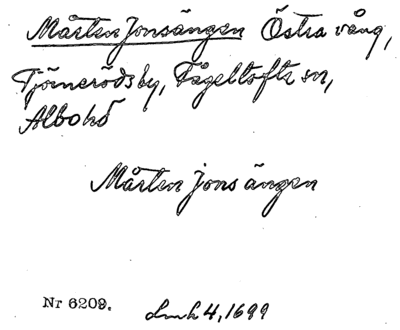 Mårten Jonsängen Östra vång,
Tjörnerödsby, Fågeltofta sn,
Albo hd
Mårten Jons ängen
Nr 6209. Lmh 4, 1699